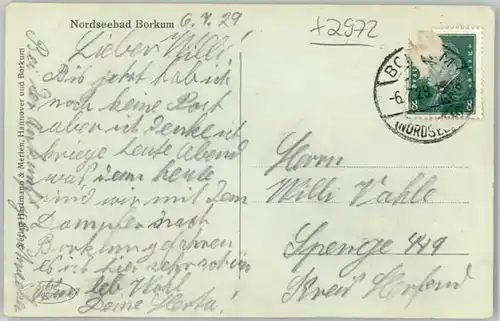 Nordseebad Borkum
6.7.29
+2972
Lieber Willi!
Bis jetzt hab ich
noch keine Post
aber ich denke ich
kriege heute Abend
was, denn heute
sind wir mit dem
Dampfer nach
Borkum gefahren
Es ist hier sehr schön
leb Wohl
Deine Herta!
Bei der Ankunft
Verlag Hofmann & Merten, Hannover und Borkum
-6.
29
(NORDSEE)
8
8
Herrn
Willi Vahle
Spenge 449
Kreis Herford